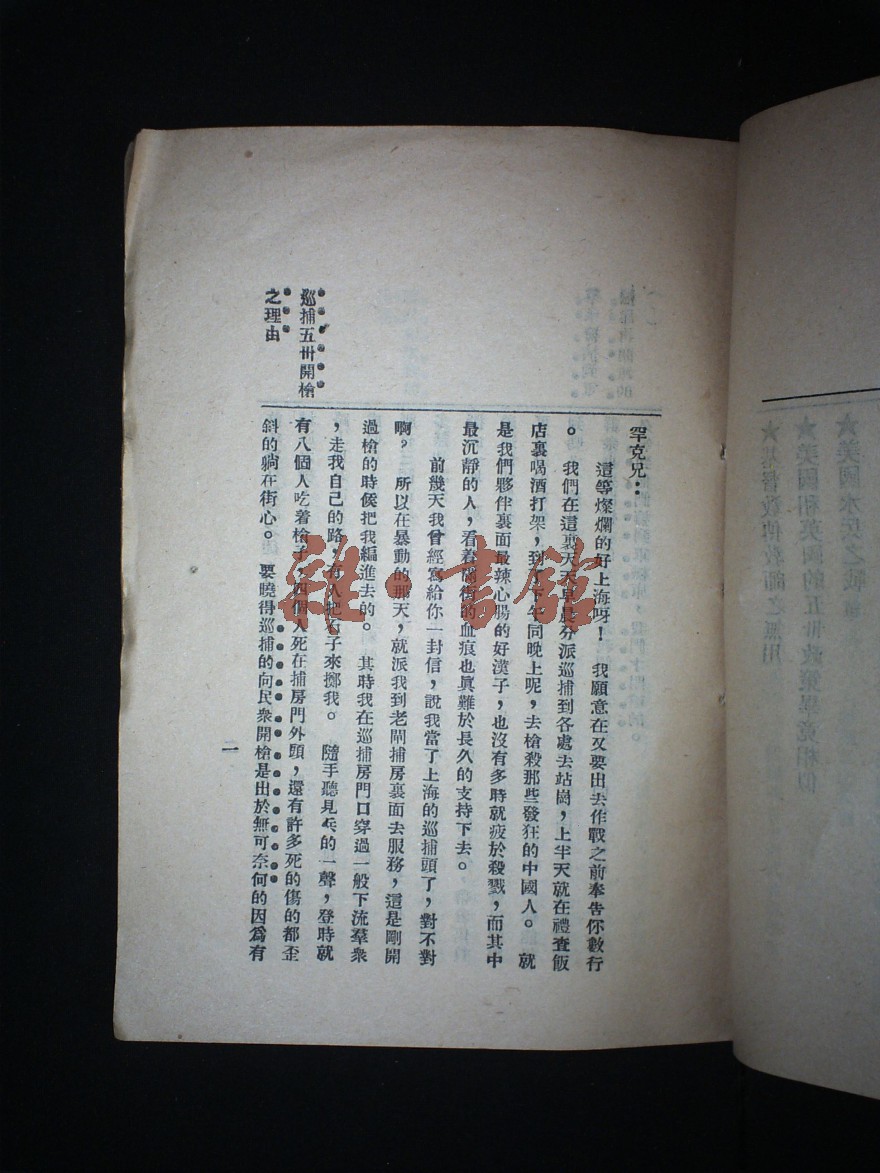 巡捕五卅開槍
之理由
罕克兄：
這等燦爛的好上海呀！　我願意在又要出去作戰之前奉告你數行
。我們在這裏天天早晨分派巡捕到各處去站崗，上半天就在禮查飯
店裏喝酒打架，到了下午同晚上呢，去槍殺那些發狂的中國人。就
是我們夥伴裏面最辣心腸的好漢子，也沒有多時就疲於殺戮，而其中
最沉靜的人，看着滿街的血痕也眞難於長久的支持下去。
前幾天我曾經寫給你一封信，說我當了上海的巡捕頭了，對不對
啊？　所以在暴動的那天，就派我到老閘捕房裏面去服務，這是剛開
過槍的時候把我編進去的。　其時我在巡捕房門口穿過一般下流羣衆
，走我自己的路，有人把石子來擲我。　隨手聽見乓的一聲，登時就
有八個人吃着槍子，四個人死在捕房門外頭，還有許多死的傷的都歪
斜的躺在街心。　要曉得巡捕的向民衆開槍是出於無可奈何的因爲有
一
雜·書館
★美國水兵之戰爭
★美國和英國的五卅政策畢竟相似
★基督敎傳敎師之無用